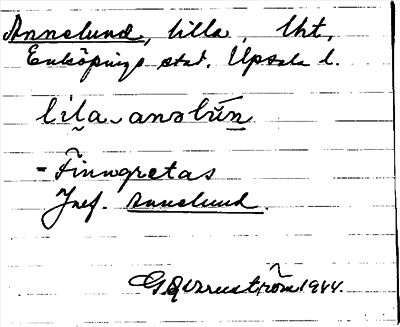 Annelund, lilla, lht,
Enköpings stad. Upsala l.
lila anəlún
= Finngretas
Jmf. Annelund.
1944.